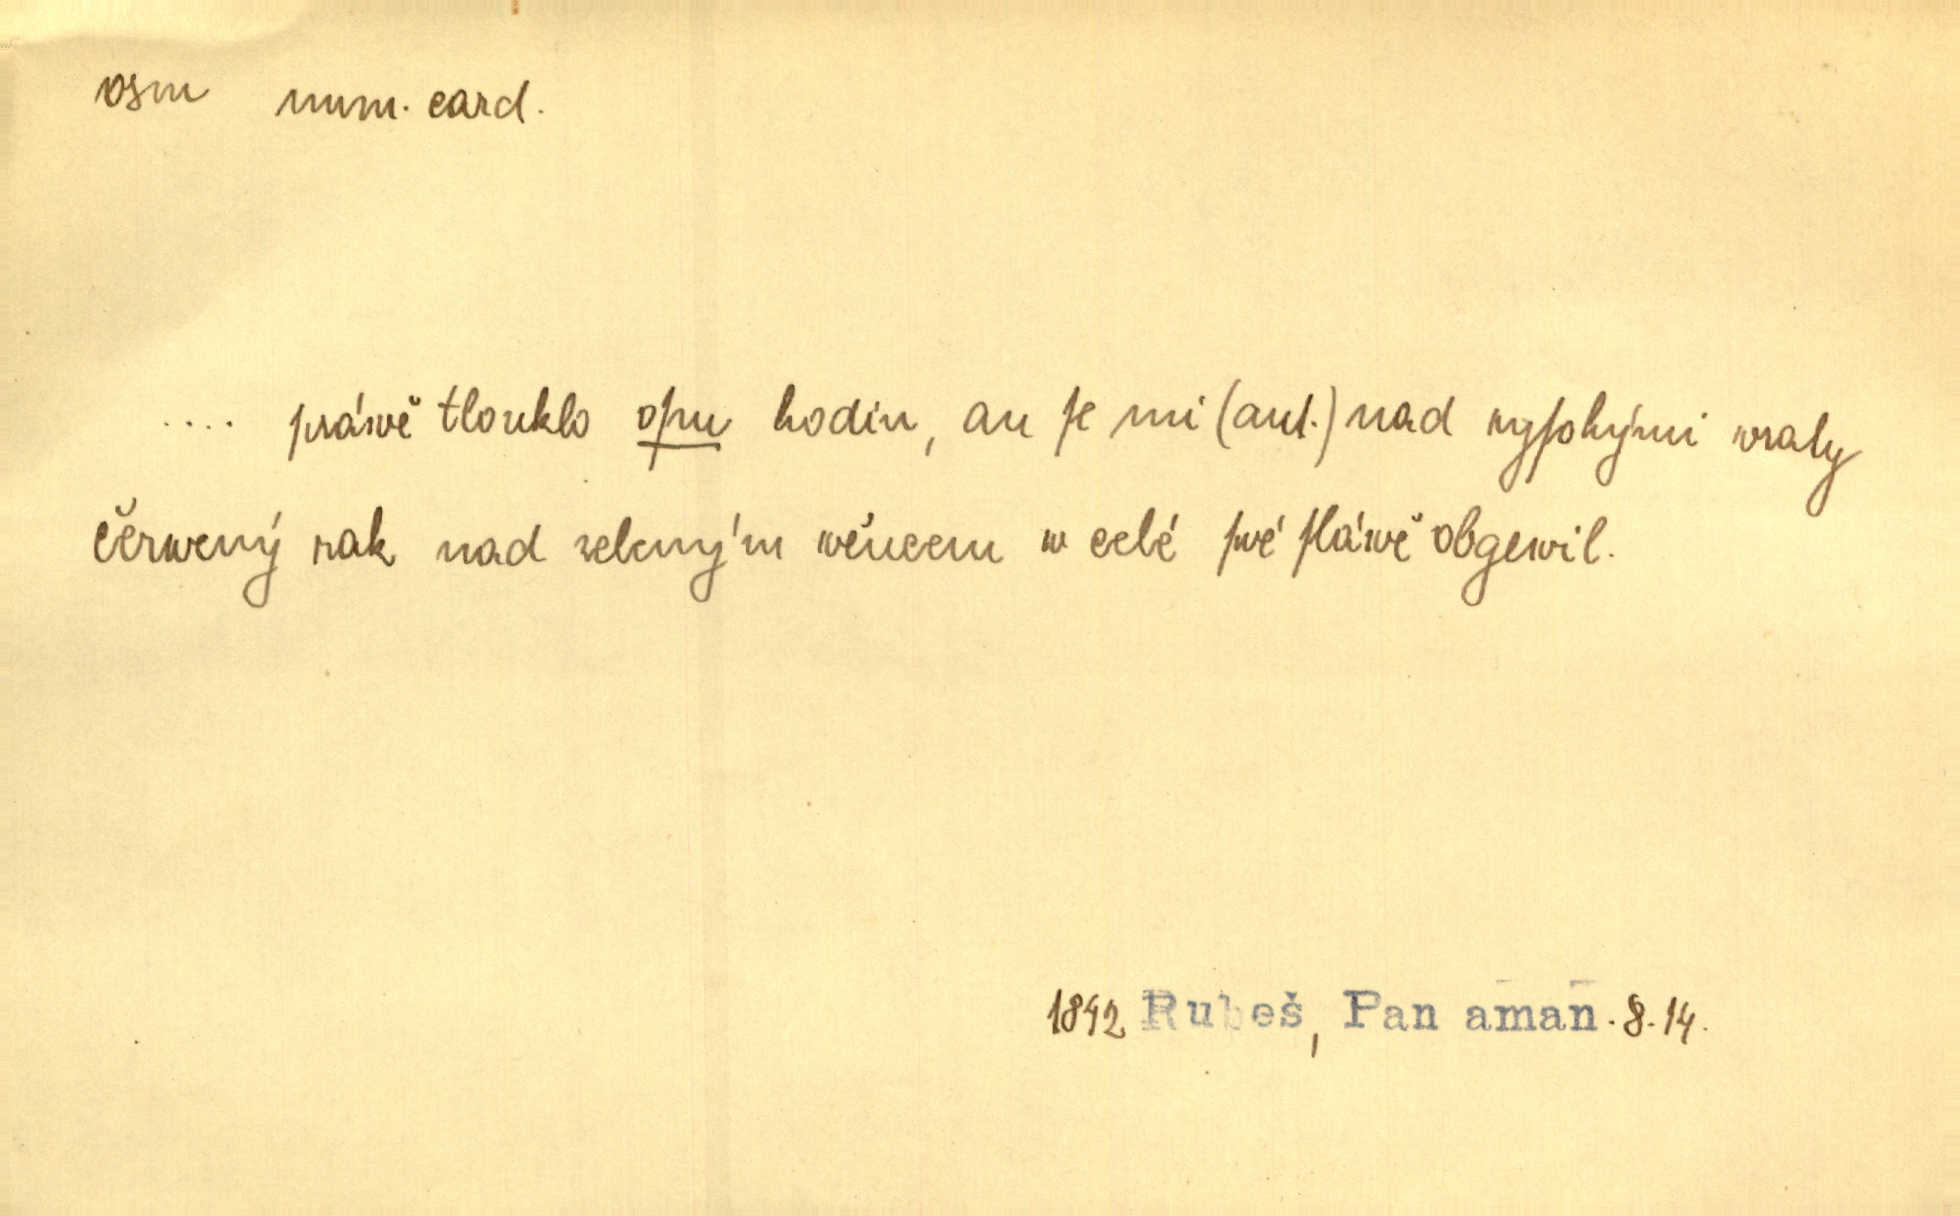 osm num. card.
.... práwě tlouklo oſm hodin, an ſe mi (aut.) nad wyſokými wraty
čerwený rak nad zeleným wěncem w celé ſwé ſláwě obgewil.
1842 Rubeš, Pan aman. 8. 14.